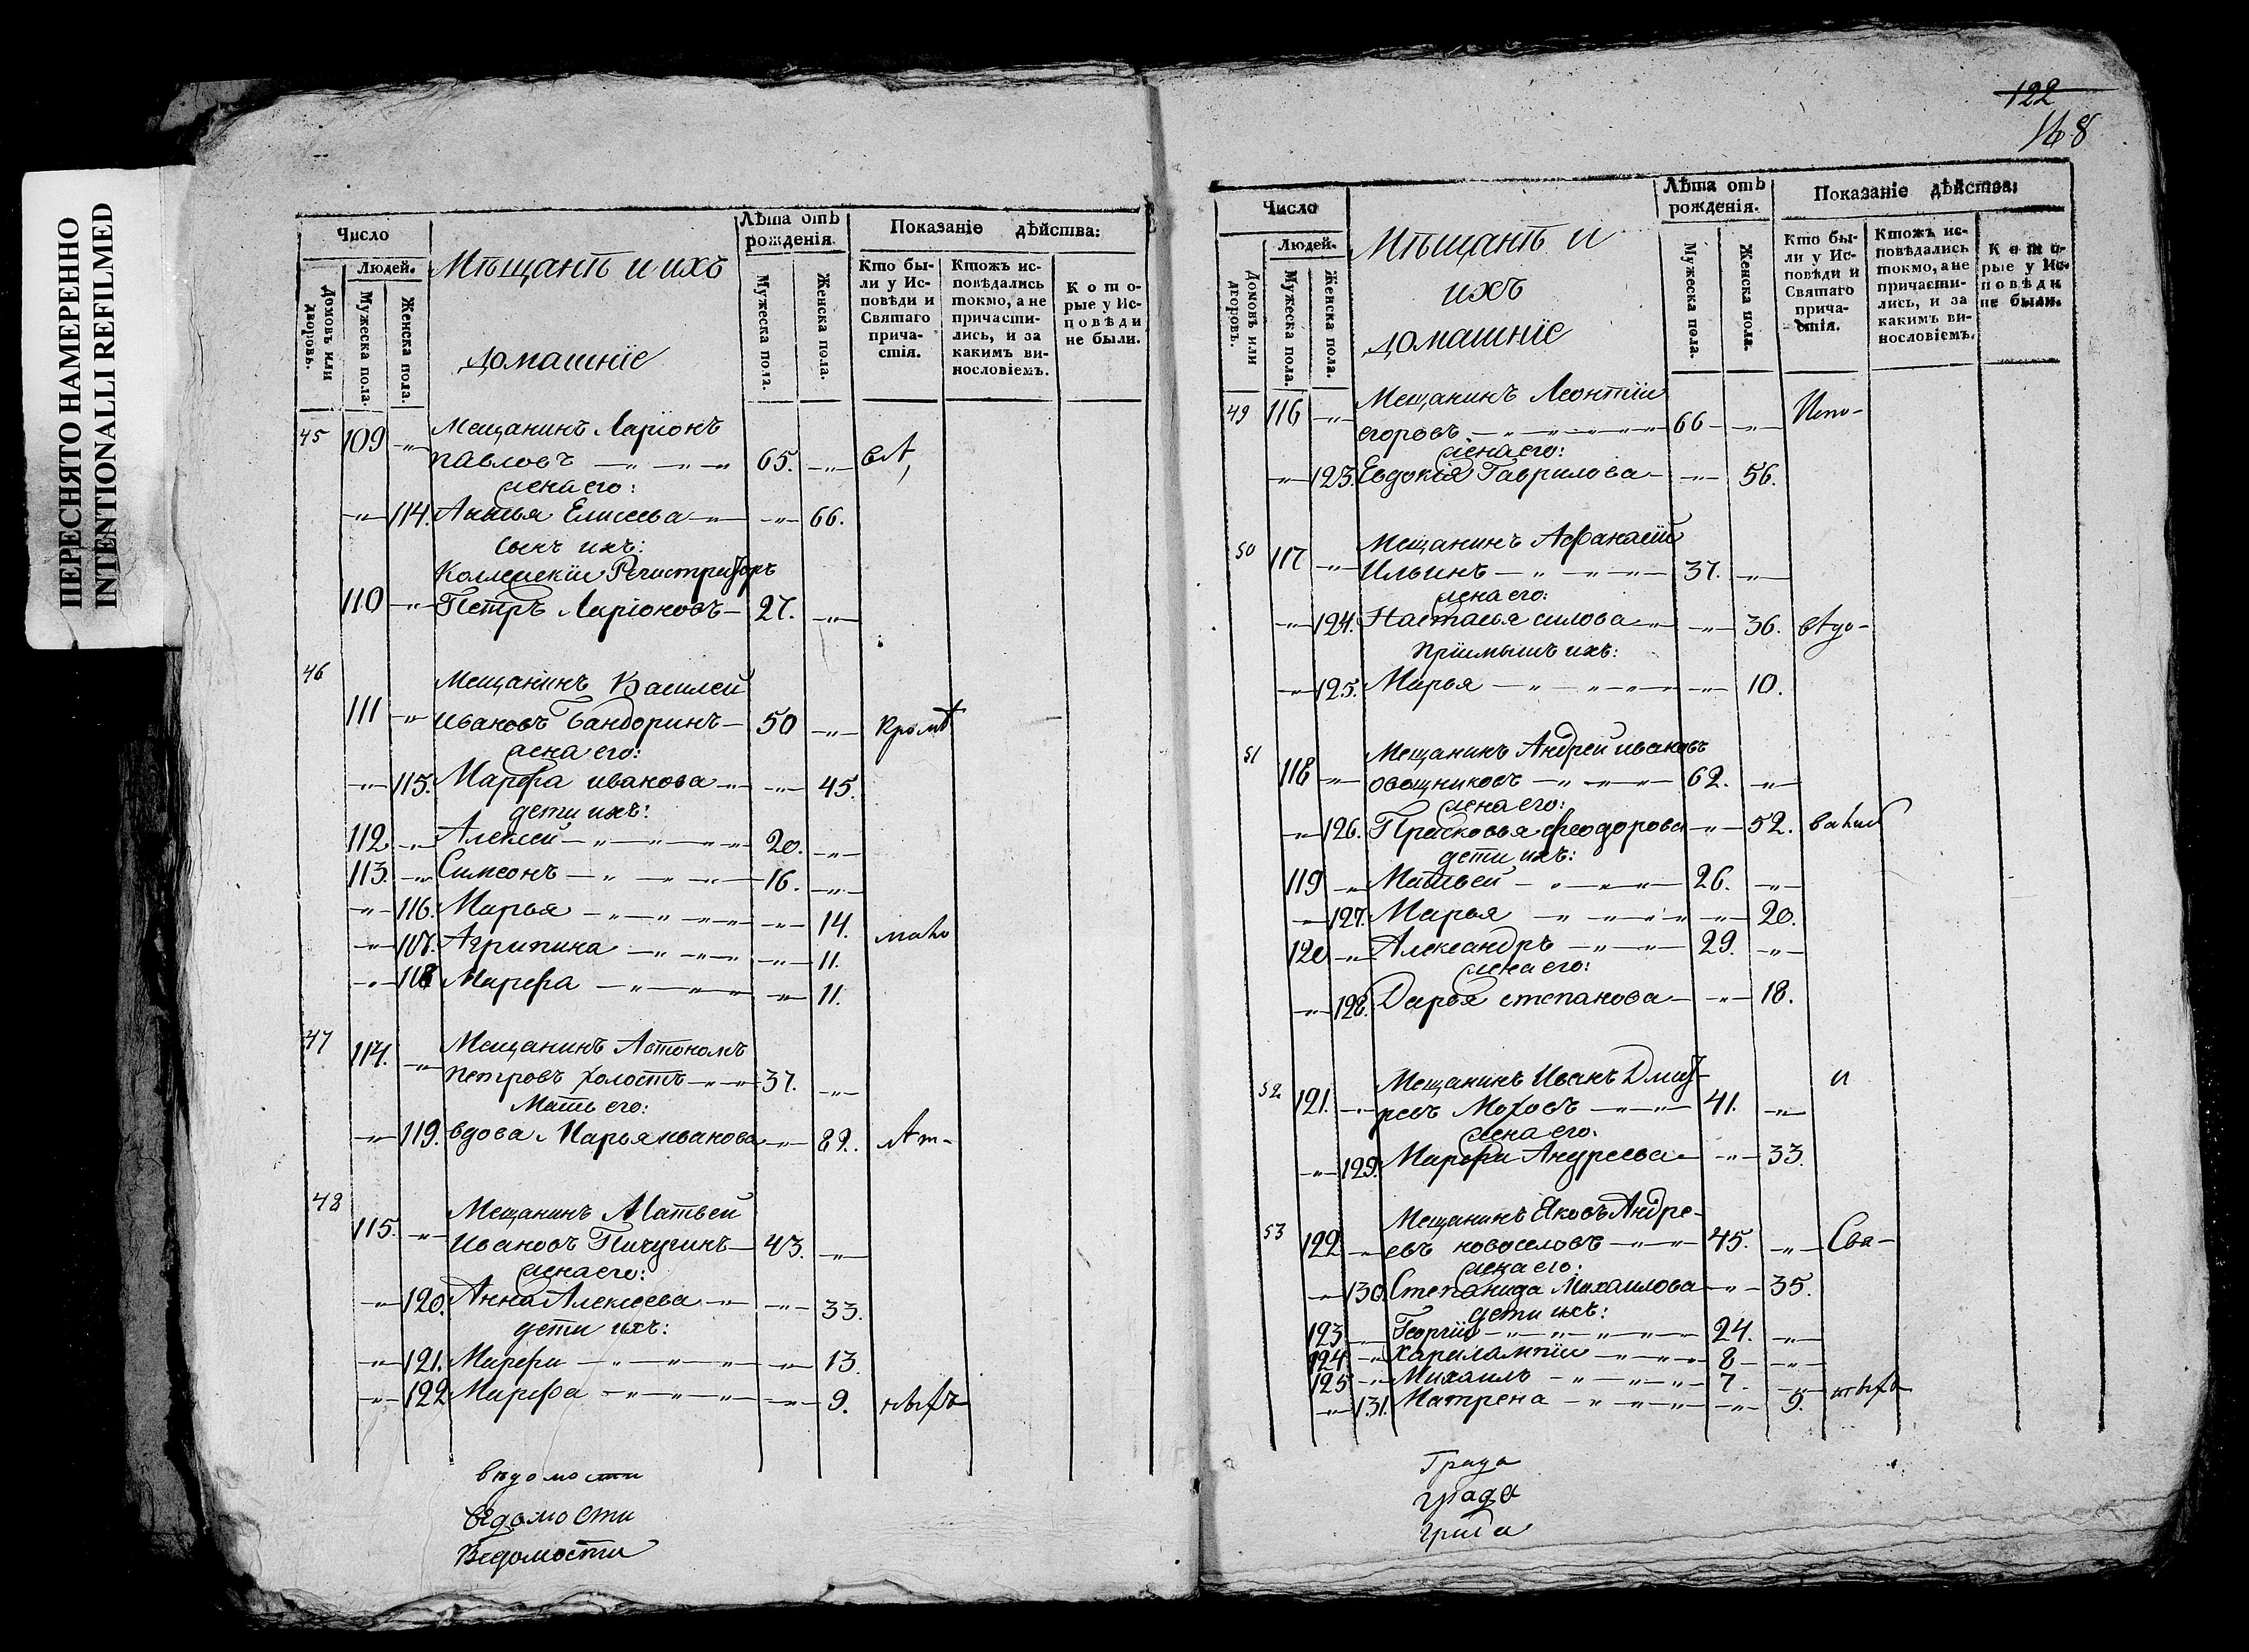 ПЕРЕСНЯТО НАМЕРЕННО
INTENTIONALLI REFILMED
Число
Людей.
Домовъ или дворовъ.
Мужеска пола.
Женска пола.
Мѣщанѣ и ихъ
домашнїе
Лѣта отъ рожденія.
Мужеска пола.
Женска пола.
Показаніе дѣйства:
Кто бы-
ли у Ис-
повѣди и
Святаго
прича-
стія.
Ктожъ ис-
повѣдались
токмо, а не
причасти-
лись, и за
какимъ ви-
нословіемъ.
Кото-
рые у Ис-
повѣди
не были.
45 109 Мещанинъ Ларїонъ
павловъ 65.
жена его:
114. Елисеева 66.
сынъ ихъ:
Коллежскїи Регистраторъ
110 Петръ Ларїоновъ 27.
46
Мещанинъ Василей
111 ивановъ Бандоринъ 50 кромѣ
жена его:
115. Марфа иванова 45.
дети ихъ:
112 Алексей 20.
113. Симеонъ 16.
116. Марья 14.
117. Агрипина 11.
118 Марфа 11.
47 114. Мещанинъ Автономъ
петровъ холостъ 37.
Мать его:
119. вдова Марья иванова 89.
48
115. Мещанинъ Матвеи
Ивановъ Пичугинъ 43.
жена его:
120. Анна Алексеева 33.
дети ихъ:
121. Марфа 13
122 Марфа 9.
вѣдомости
ведомости
Ведомости
122
168
Число
Людей.
Домовъ или дворовъ.
Мужеска пола.
Женска пола.
Мѣщанѣ и
ихъ
домашнїе
Лѣта отъ рожденія.
Мужеска пола.
Женска пола.
Показаніе дѣйства:
Кто бы-
ли у Ис-
повѣди и
Святаго
прича-
стія.
Ктожъ ис-
повѣдались
токмо, а не
причасти-
лись, и за
какимъ ви-
нословіемъ.
Кото-
рые у Ис-
повѣди
не были.
49 116 Мещанинъ Леонтїи
егоровъ 66
жена его:
123. Евдокїя Гаврилова 56.
50 117 Мещанинъ Афанасїи
Ильинъ 37.
жена его:
124. Настасья силова 36.
Прїимышъ ихъ:
125. Марья 10.
51
118 Мещанинъ Андреи ивановъ
овощниковъ 62.
жена его:
126. Прасковья феодорова 52.
дети ихъ:
119 Матвеи 26.
127. Марья 20.
120 Александръ 29.
жена его:
128. Дарья степанова 18.
52 121. Мещанинъ Иванъ Дмит-
ревъ Моховъ 41. и
жена его:
129. Марфа Андреева 33.
53 122 Мещанинъ Яковъ Андре-
евъ новоселовъ 45. Свя-
жена его:
130. Степанида Михаилова 35.
дети ихъ:
123. Георгїи 24.
124. Харилампїи 8
125 Михаилъ 7.
131. Матрена 9.
Града
града
града